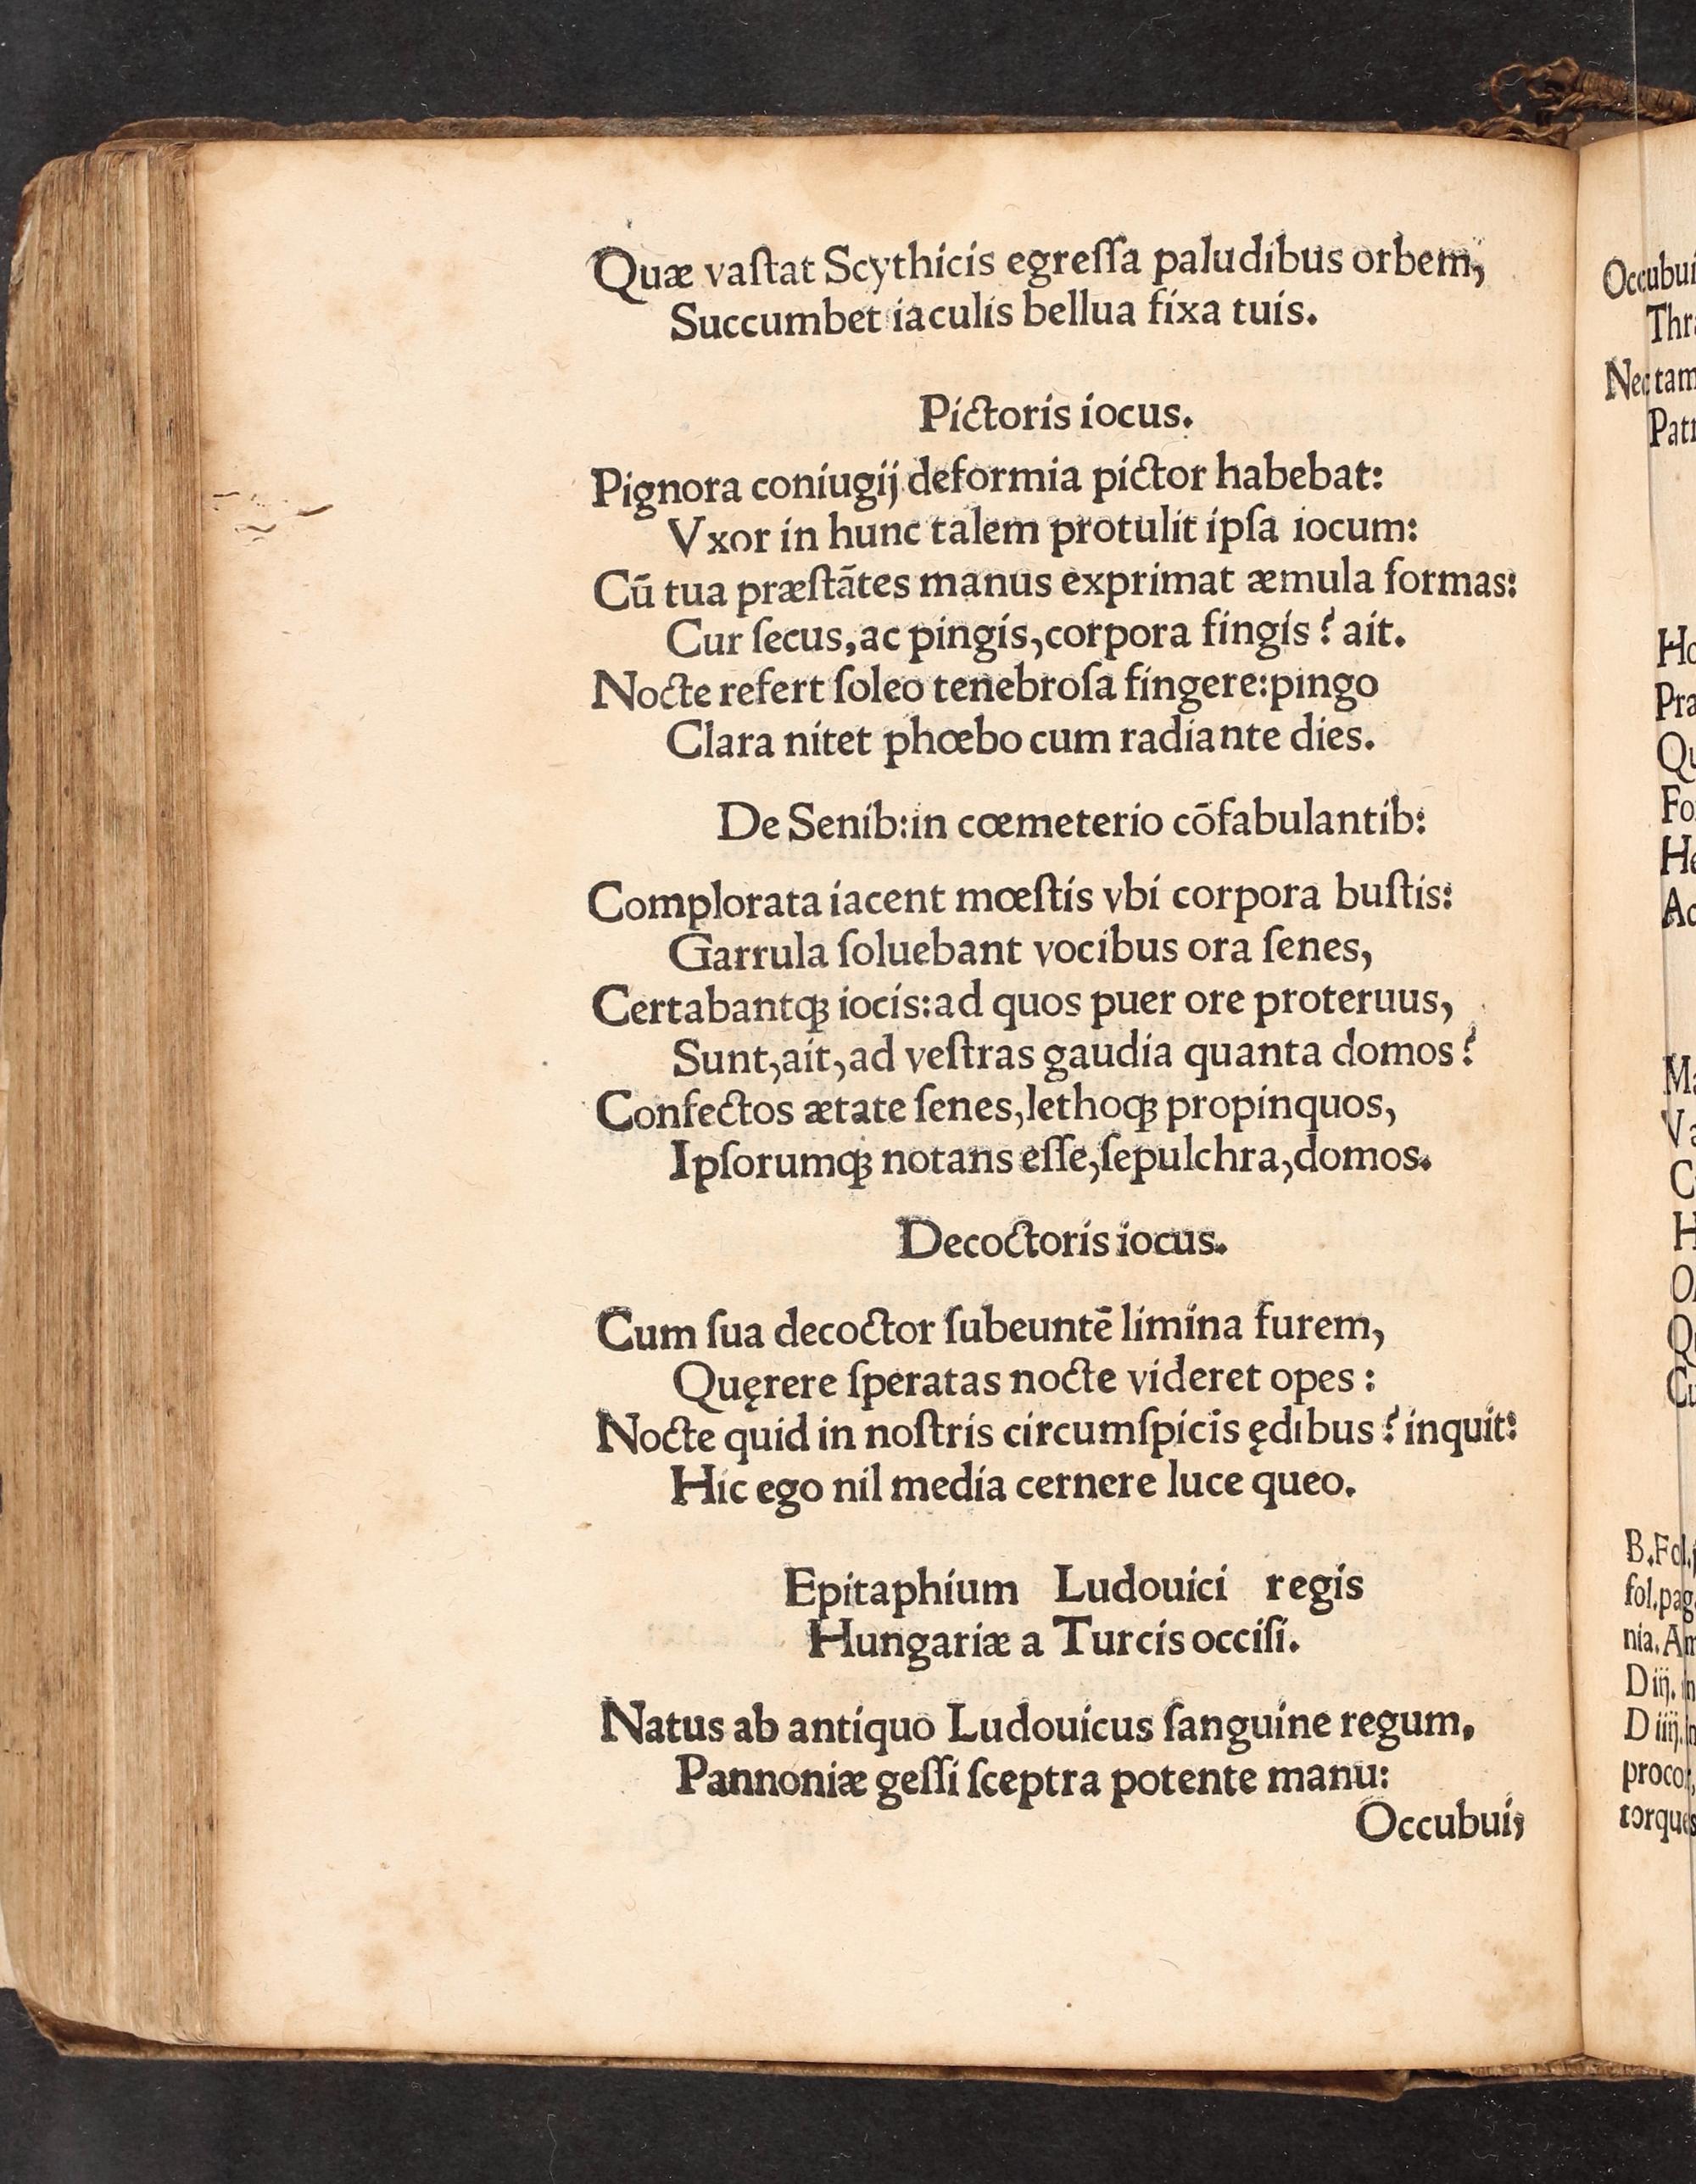 Quæ vaſtat Scythicis egreſſa paludibus orbem,
Succumbet iaculis bellua fixa tuis.
Pictoris iocus.
Pignora coniugij deformia pictor habebat:
Vxor in hunc talem protulit ipſa iocum:
Cū tua præſtātes manus exprimat æmula formas:
Cur ſecus, ac pingis, corpora fingis? ait.
Nocte refert ſoleo tenebroſa fingere: pingo
Clara nitet phœbo cum radiante dies.
De Senib: in cœmeterio cōfabulantib:
Complorata iacent mœſtis vbi corpora buſtis:
Garrula ſoluebant vocibus ora ſenes,
Certabantqꝫ iocis: ad quos puer ore proteruus,
Sunt, ait, ad veſtras gaudia quanta domos?
Confectos ætate ſenes, lethoqꝫ propinquos,
Ipſorumqꝫ notans eſſe, ſepulchra, domos.
Decoctoris iocus.
Cum ſua decoctor ſubeuntē limina furem,
Quęrere ſperatas nocte videret opes:
Nocte quid in noſtris circumſpicis ędibus? inquit:
Hic ego nil media cernere luce queo.
Epitaphium Ludouici regis
Hungariæ a Turcis occiſi.
Natus ab antiquo Ludouicus ſanguine regum,
Pannoniæ geſſi ſceptra potente manu:
Occubui,
Occubui
Nec tam
B. Fol.
fol. pag.
nia.
D iij.
D iiij.